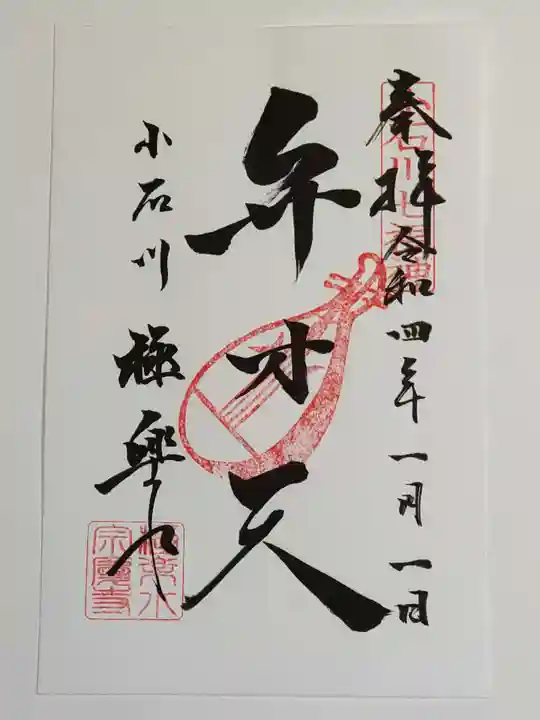 奉拝 令和四年一月一日
小石川七福神
弁才天
小石川 極楽水
極楽水
宗慶寺